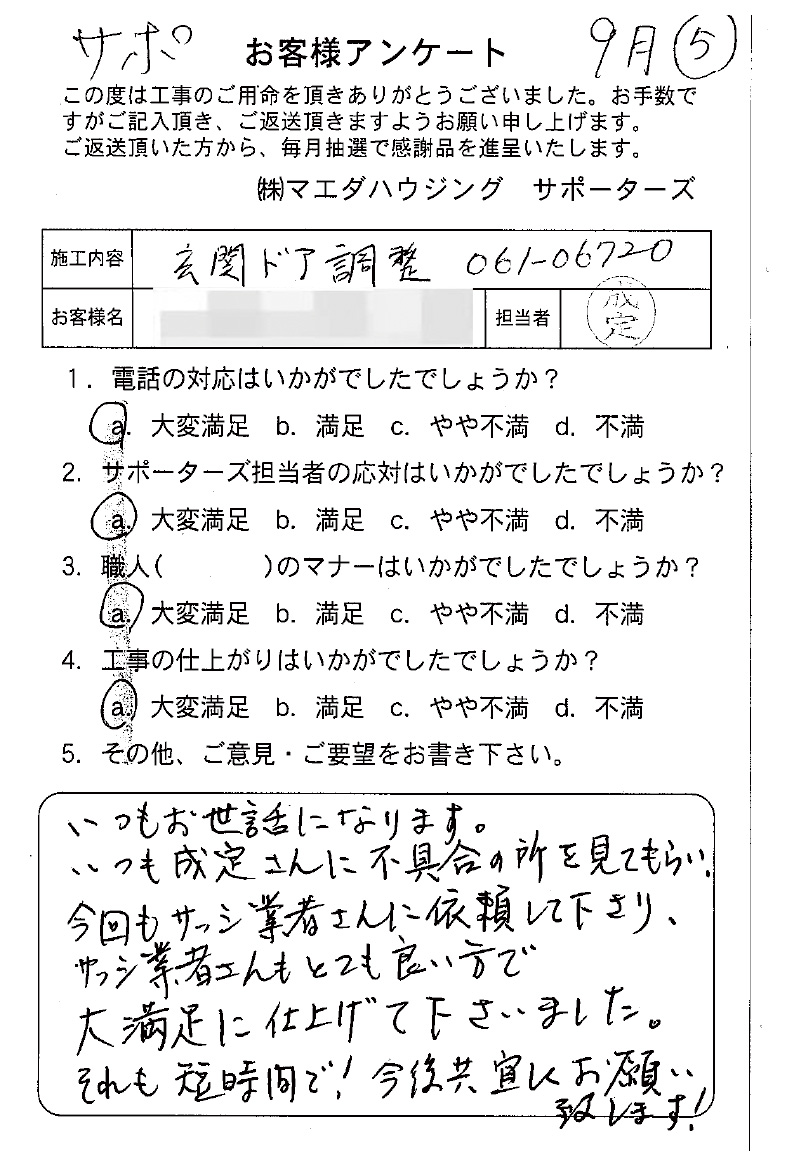 サポ お客様アンケート 9月⑤
この度は工事のご用命を頂きありがとうございました。お手数で
すがご記入頂き、ご返送頂きますようお願い申し上げます。
ご返送頂いた方から、毎月抽選で感謝品を進呈いたします。
㈱マエダハウジング サポーターズ
施工内容 玄関ドア調整 061-06720
お客様名 担当者 成定
1. 電話の対応はいかがでしたでしょうか？
a. 大変満足 b. 満足 c. やや不満 d. 不満
2. サポーターズ担当者の応対はいかがでしたでしょうか？
a. 大変満足 b. 満足 c. やや不満 d. 不満
3. 職人( )のマナーはいかがでしたでしょうか？
a. 大変満足 b. 満足 c. やや不満 d. 不満
4. 工事の仕上がりはいかがでしたでしょうか？
a. 大変満足 b. 満足 c. やや不満 d. 不満
5. その他、ご意見・ご要望をお書き下さい。
いつもお世話になります。
いつも成定さんに不具合の所を見てもらい、
今回もサッシ業者さんに依頼して下さり、
サッシ業者さんもとても良い方で
大満足に仕上げて下さいました。
それも短時間で！今後共宜しくお願い
致します！